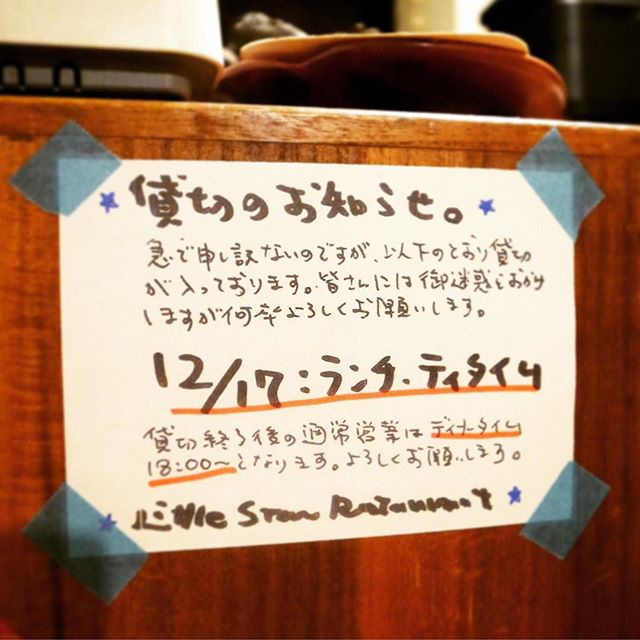 貸切のお知らせ。
急で申し訳ないのですが、以下のとおり貸切
が入っております。皆さんには御迷惑をおかけ
しますが何卒よろしくお願いします。
12/17:ランチ、ティタイム
貸切終了後の通常営業はディナータイム
18:00〜となります。よろしくお願いします。
Little Star Restaurant